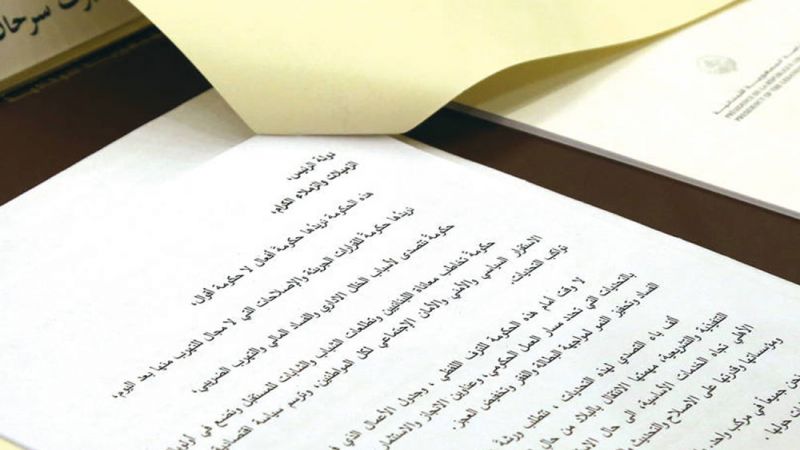 سرحال
PRÉSIDENCE DE LA RÉPUBLIQUE
PRESIDENCY OF THE
دولة الرئيس،
الزميلات والزملاء الكرام،
هذه الحكومة نريدُها حكومة أفعال لا حكومة أقوال.
نريدُها حكومةً للقرارات الجريئة والإصلاحات التي لا مجال للتهرب منها بعد اليوم،
حكومةً تتصدى لأسباب الخلل الاداري والفساد المالي والتهرب الضريبي.
حكومة تخاطب معاناة اللبنانيين وتطلعات الشباب والشابات للمستقبل وتضع في
الاستقرار السياسي والأمني والأمان الإجتماعي لكل المواطنين، وترسم سياسة اقتصادية
تواكب التحديات.
لا وقت أمام هذه الحكومة للترف اللفظي، وجدول الأعمال الذي
بالتحديات التي تحدد مسار العمل الحكومي، وعناوين الانجاز والاستثمار
الفساد وتحفيز النمو لمواجهة البطالة والفقر وتخفيض العجز.
ألف باء التصدي لهذه التحديات، تتطلب ورشة
التنفيذية والتشريعية، مهمتها الانتقال بالبلاد من حال
الأهلي تجاه الخدمات الأساسية، الى حال
ومؤسساتها وقدرتها على الاصلاح والتحديث
جميعاً في مركب واحد،